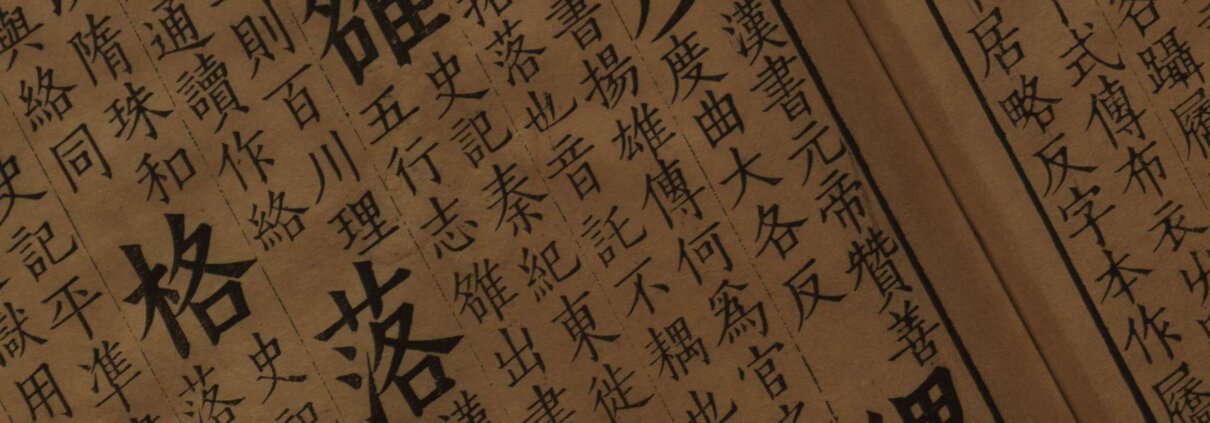 躡屩
式傳布衣
居略反字本作屩
漢書元帝贊善
度曲大各反
書揚雄傳何為官
落也音託不耦也
史記秦紀東徙
雒五行志雒出書
則百川理落
通讀作絡史
隋珠和格落
與絡同
史記平準
獄用